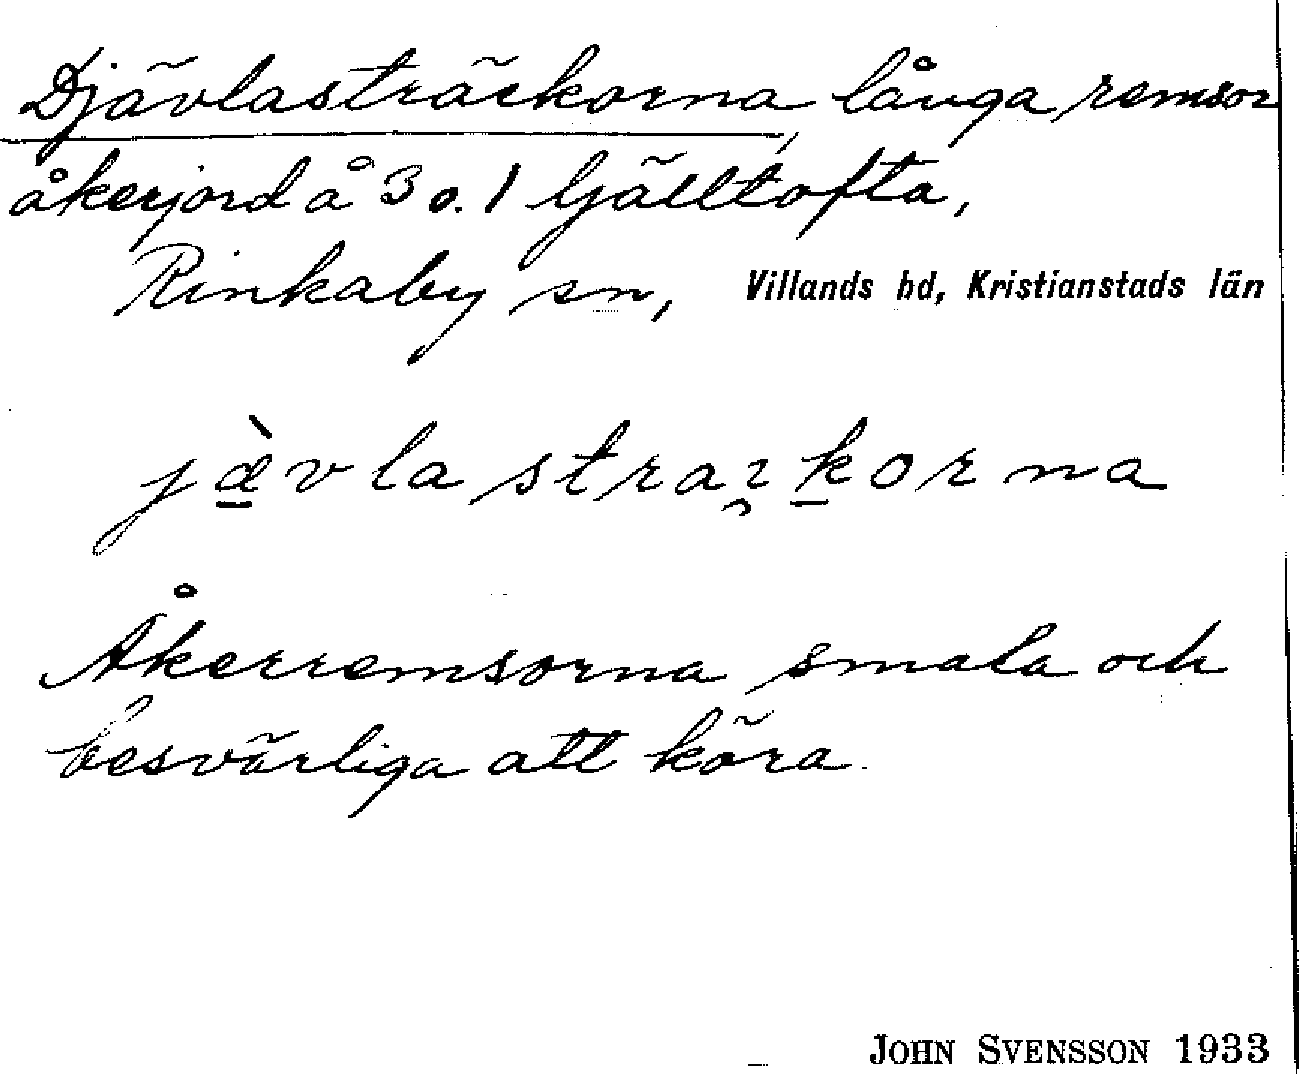 Djävlasträckorna, långa remsor
åkerjord å 3 o. 1 Gjälltofta,
Rinkaby sn, Villands hd, Kristianstads län
jævlastraikorna
Åkerremsorna smala och
besvärliga att köra.
JOHN SVENSSON 1933